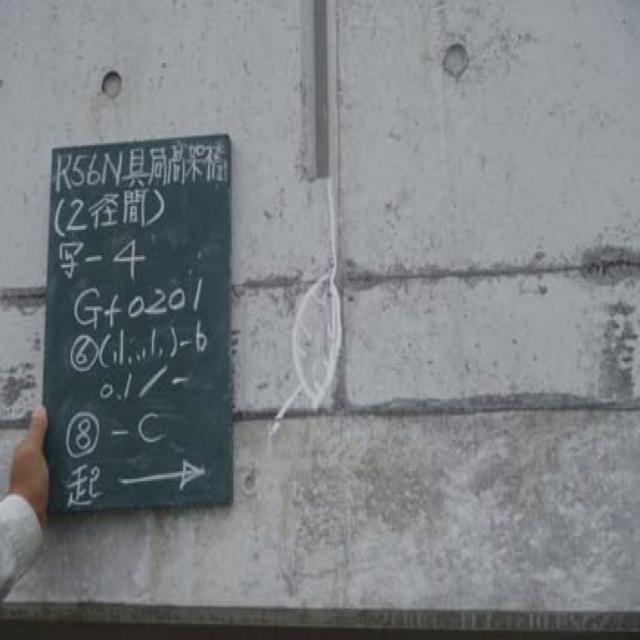 R56N具同高架橋
(2径間)
写-4
Gf0201
⑥(,1,,,1,)-b
0.1/-
⑧-C
起→